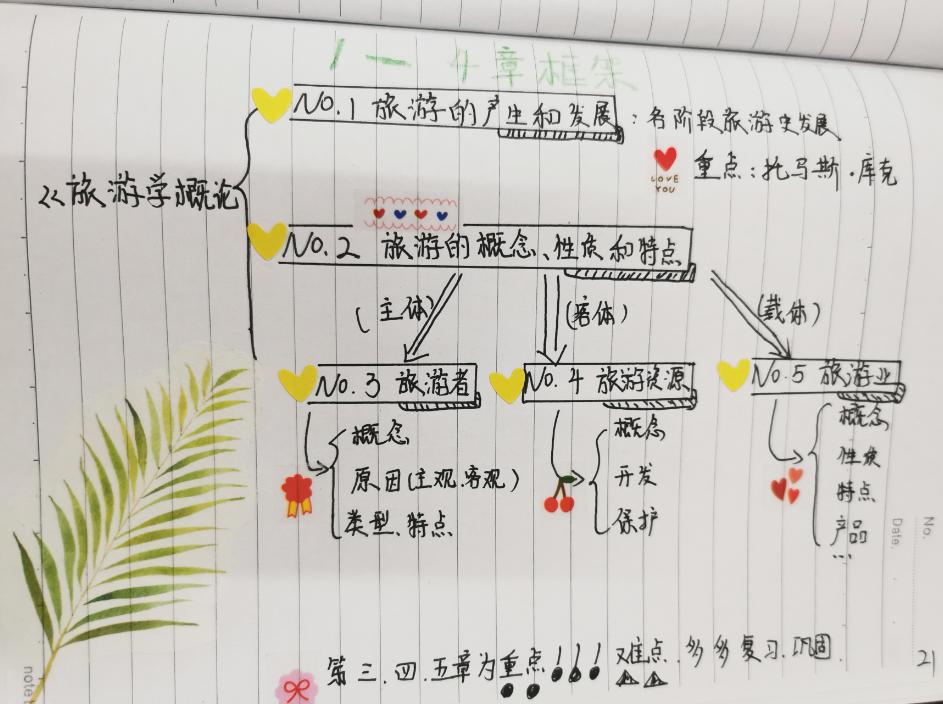 1 一 4章框架
No.1 旅游的产生和发展 : 各阶段旅游史发展
LOVE YOU
重点:托马斯·库克
《旅游学概论
No.2 旅游的概念、性质和特点
(主体) (客体) (载体)
No.3 旅游者 No.4 旅游资源 No.5 旅游业
概念
原因(主观.客观)
类型.特点
概念
开发
保护
概念
性质
特点
产品
...
第三.四.五章为重点!!! 难点.多多复习.巩固.
No.
Date.
21
note